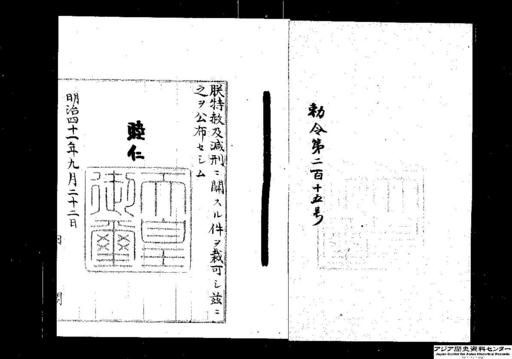 勅令第二百十五号
朕特赦及減刑ニ関スル件ヲ裁可シ茲ニ
之ヲ公布セシム
睦仁
天皇御璽
明治四十一年九月二十二日
内閣
アジア歴史資料センター
Japan Center for Asian Historical Records